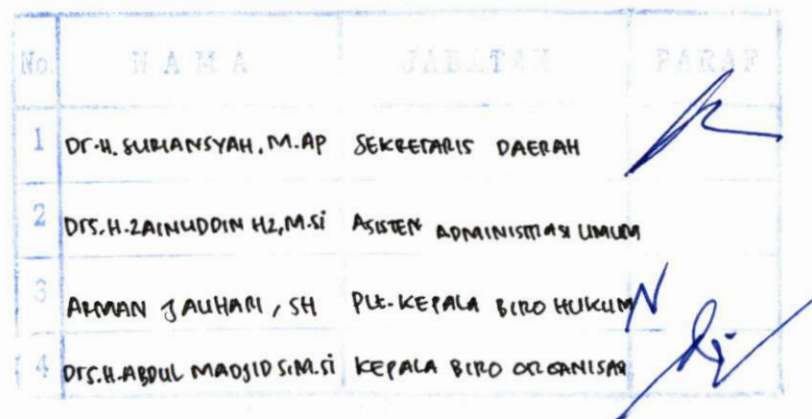 No. NAMA JABATAN PARAF
1 Dr.H. SURIANSYAH, M.AP SEKRETARIS DAERAH
2 Drs.H.ZAINUDDIN HZ,M.Si ASISTEN ADMINISTRASI UMUM
3 ARMAN JAUHARI, SH PLt.KEPALA BIRO HUKUM
4 Drs.H.ABDUL MADJID S,M.Si KEPALA BIRO ORGANISASI